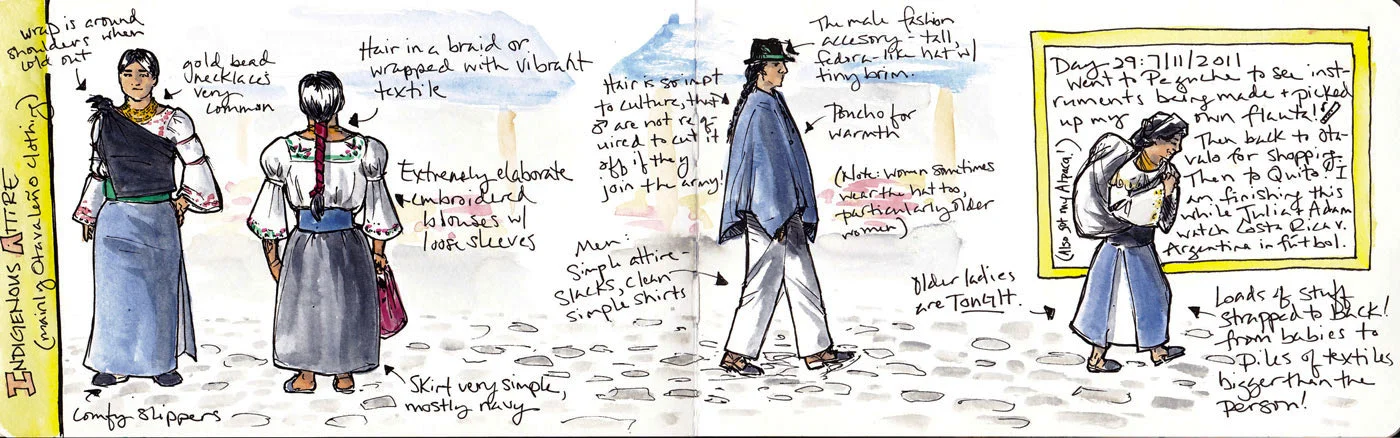 INDIGENOUS ATTIRE
(mainly Otavaleño clothing)
wrap is around
shoulders when
cold out
gold bead
necklaces
very
common
Hair in a braid or
wrapped with vibrant
textile
Extremely elaborate
embroidered
blouses w/
loose sleeves
Skirt very simple,
mostly navy
comfy slippers
Hair is so impt
to culture, that
♂ are not req-
uired to cut it
off if they
join the army!
The male fashion
accesory - tall
fedora-like hat w/
tiny brim.
Poncho for
warmth
(Note: women sometimes
wear the hat too,
particularly older
women)
Men:
Simple attire -
slacks, clean
simple shirts
older ladies
are TOUGH.
Day-29: 7/11/2011
Went to Peguche to see inst-
ruments being made + picked
up my own flauta!
Then back to Ota-
valo for shopping.
Then to Quito & I
am finishing this
while Julia + Adam
watch Costa Rica v.
Argentina in fútbol.
(Also got my Alpaca!)
Loads of stuff
strapped to back!
from babies to
piles of textiles
bigger than the
person!